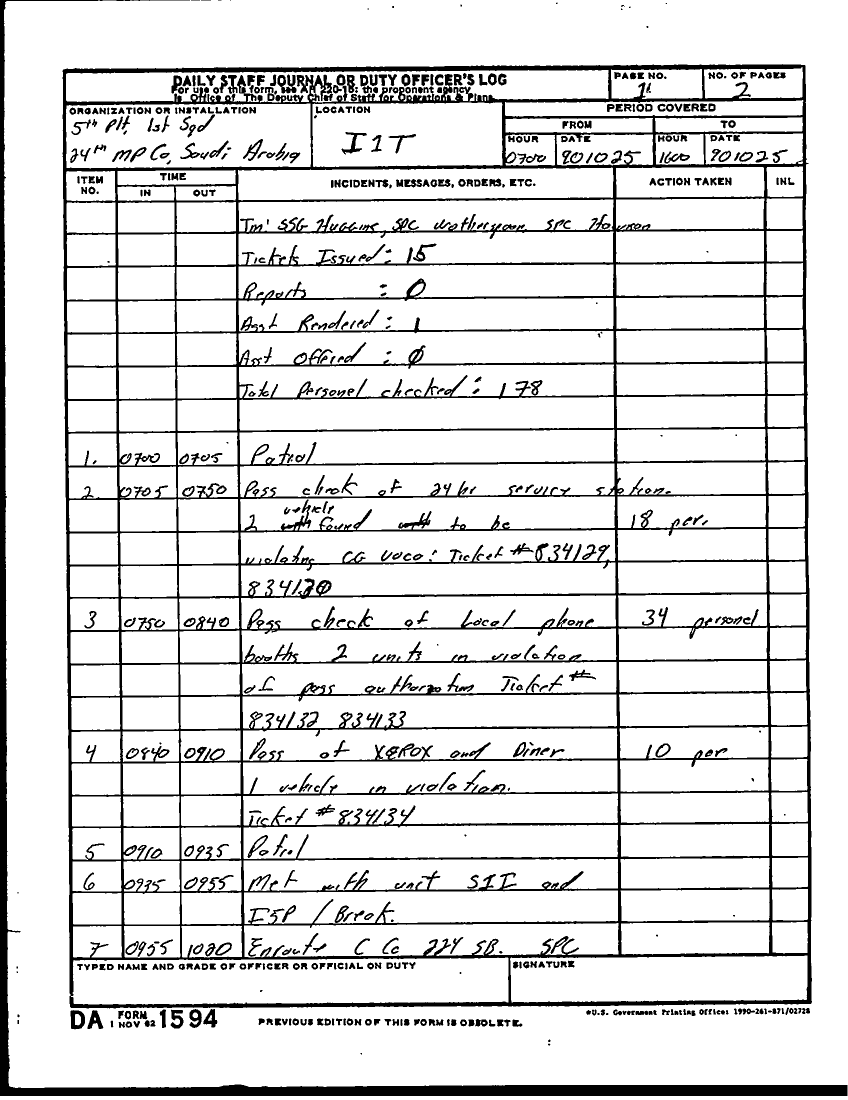 DAILY STAFF JOURNAL OR DUTY OFFICER'S LOG
For use of this form, see AR 220-15; the proponent agency
is Office of The Deputy Chief of Staff for Operations & Plans
PAGE NO.
1
NO. OF PAGES
2
ORGANIZATION OR INSTALLATION
5th Plt, 1st Sqd
24th MP Co, Saudi Arabia
LOCATION
I1T
PERIOD COVERED
FROM TO
HOUR DATE HOUR DATE
0700 901025 1600 901025
ITEM NO. TIME IN OUT INCIDENTS, MESSAGES, ORDERS, ETC. ACTION TAKEN INL
Tm: SSG Huggins, SPC SPC
Tickets Issued: 15
Reports : 0
Asst Rendered: 1
Asst Offered : 0
Total Personel checked: 178
1. 0700 0705 Patrol
2. 0705 0750 Pass check of 24 hr service station.
2 vehicle found to be 18 per.
violating CG VOCO: Ticket # 834129,
834130
3 0750 0840 Pass check of Local phone 34 personel
booths 2 units in violation
of pass Ticket #
834132, 834133
4 0840 0910 Pass of XEROX and Diner 10 per
1 vehicle in violation.
Ticket # 834134
5 0910 0935 Patrol
6 0935 0955 Met with unit SII and
ISP / Break.
7 0955 1020 Enroute C Co 224 SB. SPC
TYPED NAME AND GRADE OF OFFICER OR OFFICIAL ON DUTY SIGNATURE
DA FORM 1 NOV 62 1594 PREVIOUS EDITION OF THIS FORM IS OBSOLETE. *U.S. Government Printing Office: 1990-261-871/02728